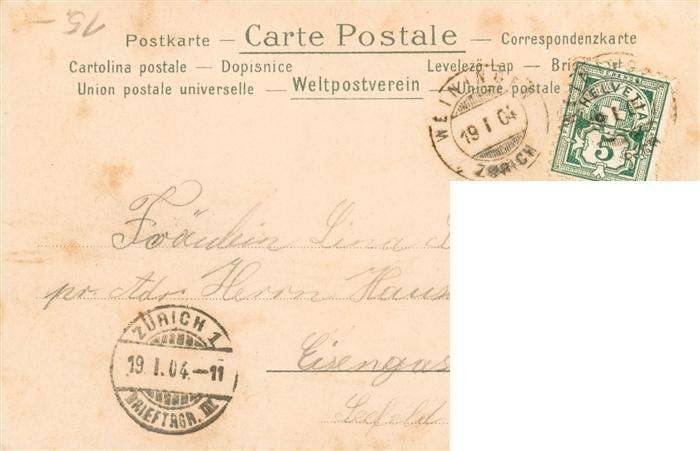 15.-
Postkarte — Carte Postale — Correspondenzkarte
Cartolina postale — Dopisnice Levelező-Lap —
Union postale universelle — Weltpostverein — Unione postale
WEININGEN
19 I 04
ZÜRICH
HELVETIA
5
Fräulein Lina
pr. Adr. Herrn
Eisengas
Seefeld
ZÜRICH 1
19. I. 04.–11
BRIEFTRGR.